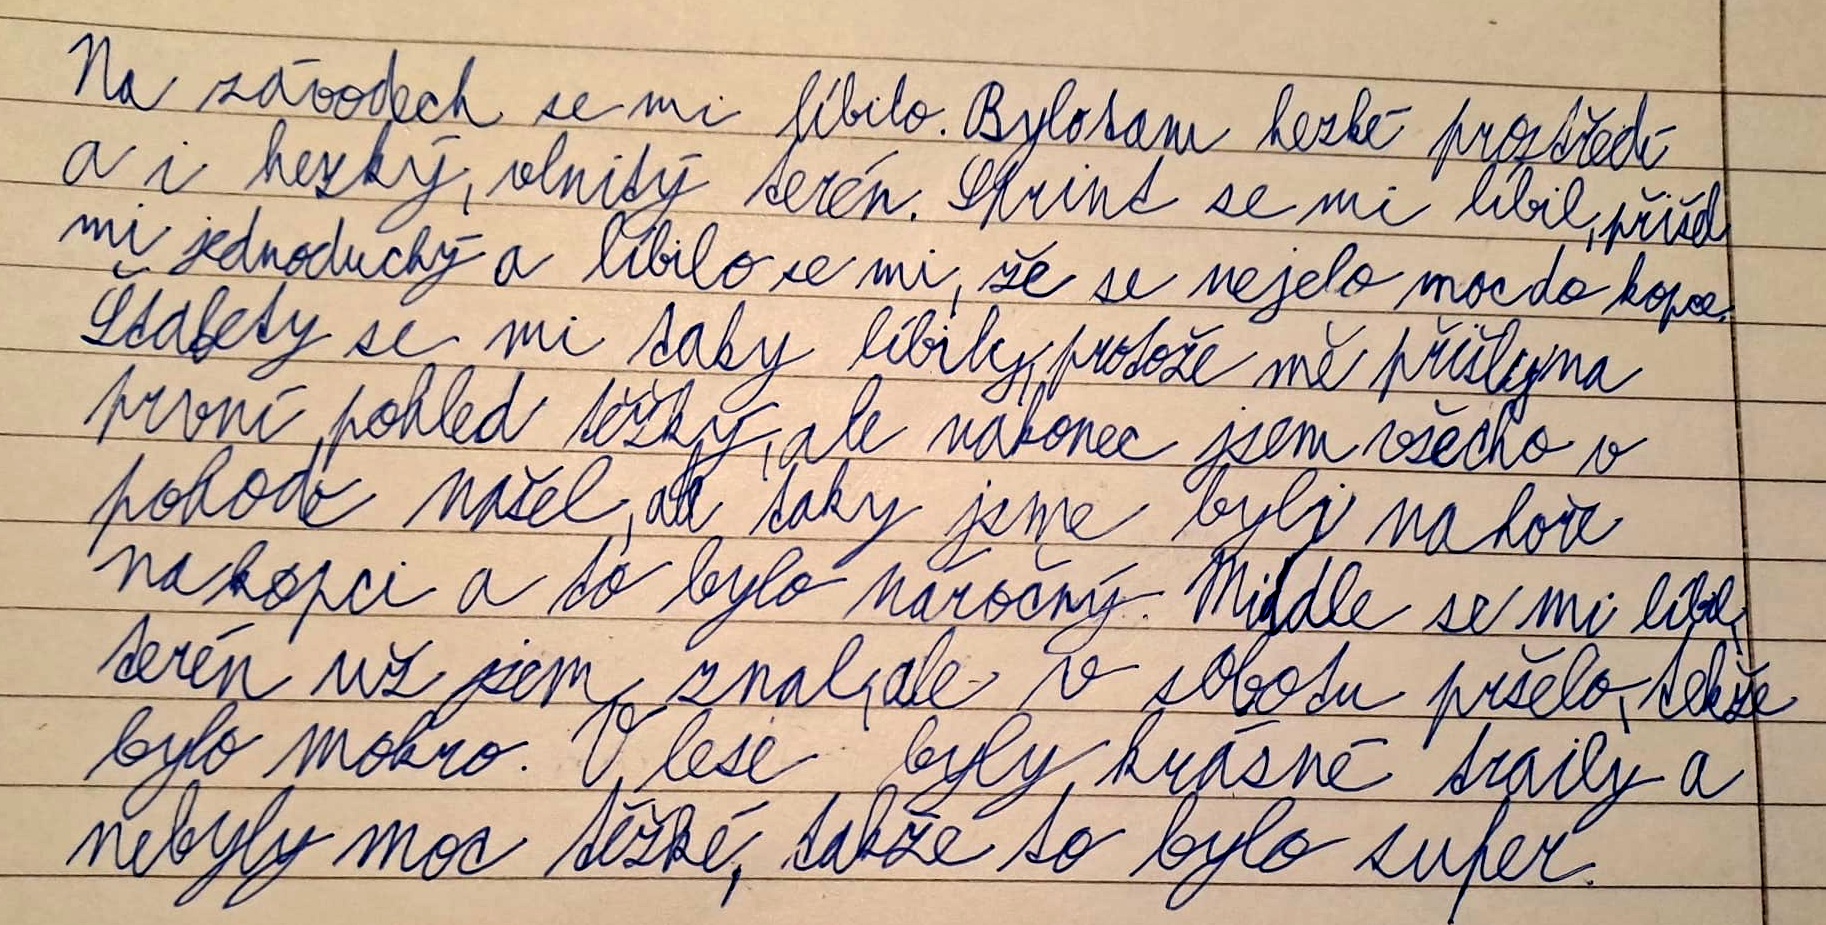 Na závodech se mi líbilo. Bylo tam hezké prostředí
a i hezký, vlnitý terén. Sprint se mi líbil, přišel
mi jednoduchý a líbilo se mi, že se nejelo moc do kopce.
Štafety se mi taky líbily, protože mě přišly na
první pohled těžký, ale nakonec jsem všecho v
pohodě našel, ale taky jsme byli na hoře
na kopci a to bylo náročný. Middle se mi líbil,
terén už jsem znal, ale v sobotu pršelo, takže
bylo mokro. V lese byly krásné traily a
nebyly moc těžké, takže to bylo super.